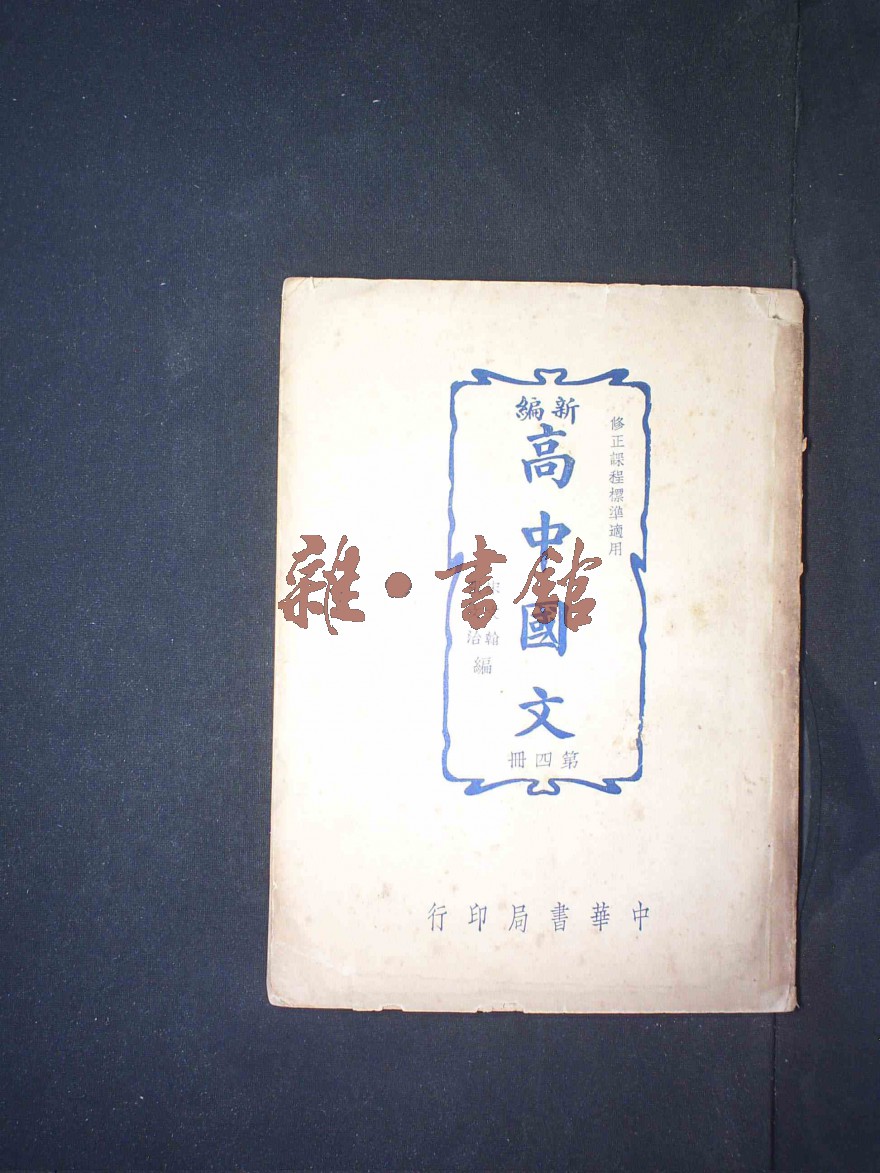 修正課程標準適用
新編
高中國文
第四冊
翰
治
編
中華書局印行
雜·書館